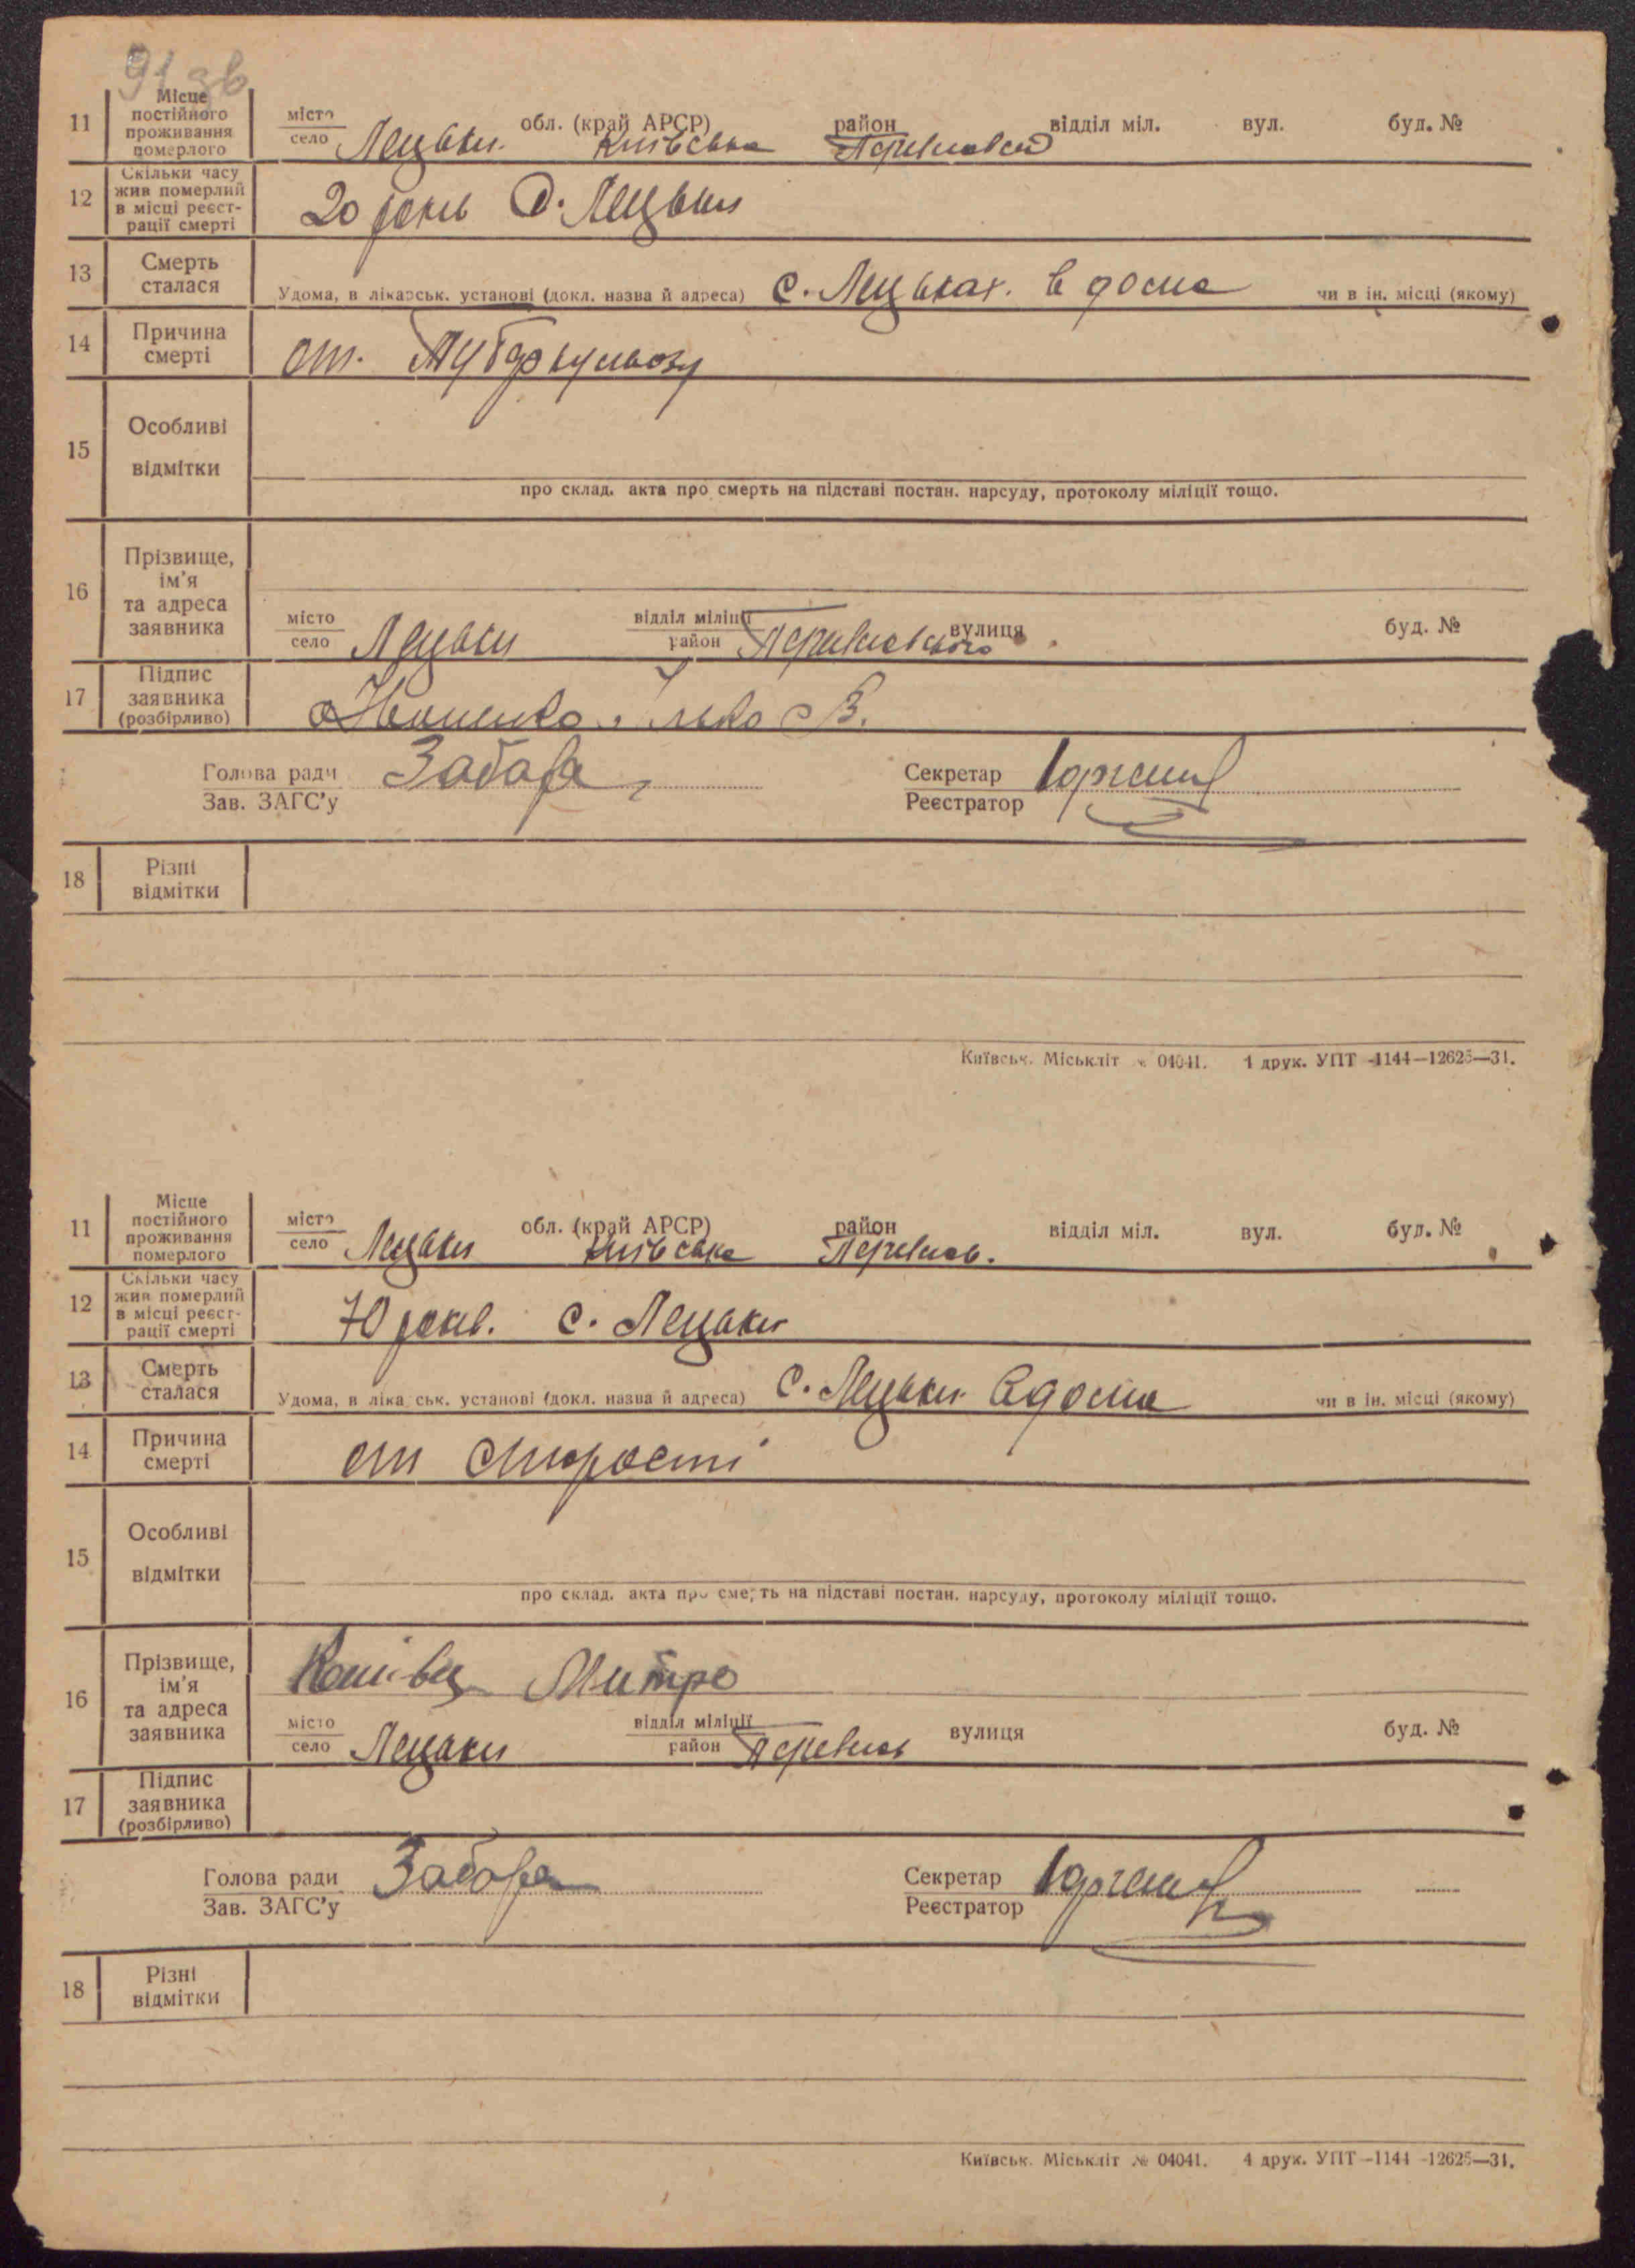 91 зв
11 Місце постійного проживання померлого місто село Лецьки обл. (край АРСР) Київська район відділ міл. вул. буд. №
12 Скільки часу жив померлий в місці реєст-рації смерті 20 років с. Лецьки
13 Смерть сталася Удома, в лікарськ. установі (докл. назва й адреса) с. Лецьках. в дома чи в ін. місці (якому)
14 Причина смерті от. Туберкульозу
15 Особливі відмітки
про склад. акта про смерть на підставі постан. нарсуду, протоколу міліції тощо.
16 Прізвище, ім'я та адреса заявника
місто село Лецьки відділ міліції район вулиця буд. №
17 Підпис заявника (розбірливо)
Голова ради Зав. ЗАГС'у Забара Секретар Реєстратор
18 Різні відмітки
Київськ. Міськліт № 04041. 4 друк. УПТ -1144-12625—31.
11 Місце постійного проживання померлого місто село Лецьки обл. (край АРСР) Київська район Переяслов. відділ міл. вул. буд. №
12 Скільки часу жив померлий в місці реєст-рації смерті 70 років. с. Лецьки
13 Смерть сталася Удома, в лікарськ. установі (докл. назва й адреса) с. Лецьки вдома чи в ін. місці (якому)
14 Причина смерті от старості
15 Особливі відмітки
про склад. акта про смерть на підставі постан. нарсуду, протоколу міліції тощо.
16 Прізвище, ім'я та адреса заявника Митро
місто село Лецьки відділ міліції район Переяслов вулиця буд. №
17 Підпис заявника (розбірливо)
Голова ради Зав. ЗАГС'у Забара Секретар Реєстратор
18 Різні відмітки
Київськ. Міськліт № 04041. 4 друк. УПТ -1144 -12625—31.